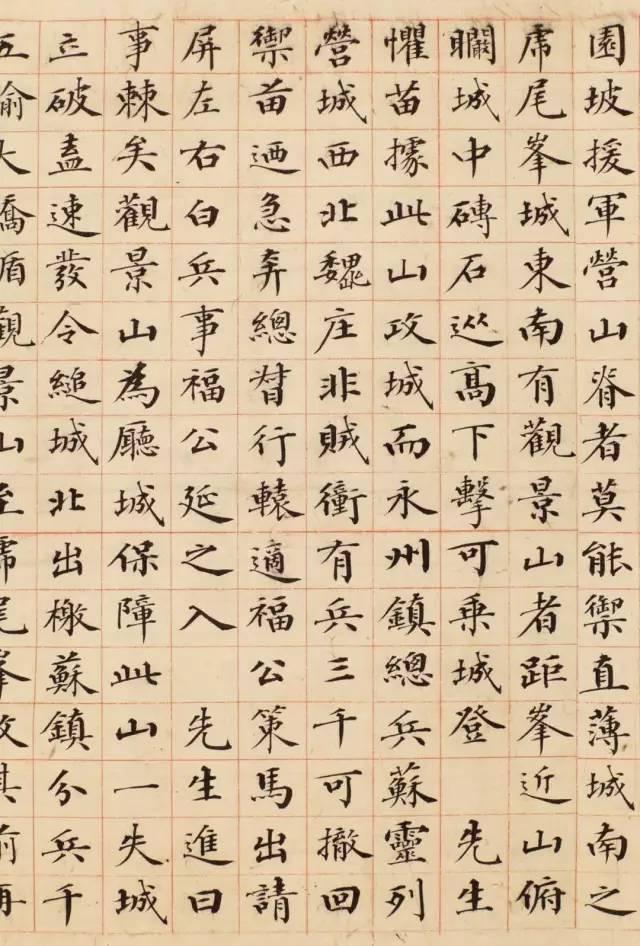 園坡援軍營山脊者莫能禦直薄城南之
虎尾峯城東南有觀景山者距峯近山俯
瞷城中磚石巡高下擊可乘城登　先生
懼苗據此山攻城而永州鎮總兵蘇靈列
營城西北魏庄非賊衝有兵三千可撤回
禦苗迺急奔總督行轅適福公策馬出請
屏左右白兵事福公延之入　先生進曰
事棘矣觀景山為廳城保障此山一失城
立破盍速發令縋城北出檄蘇鎮分兵千
五